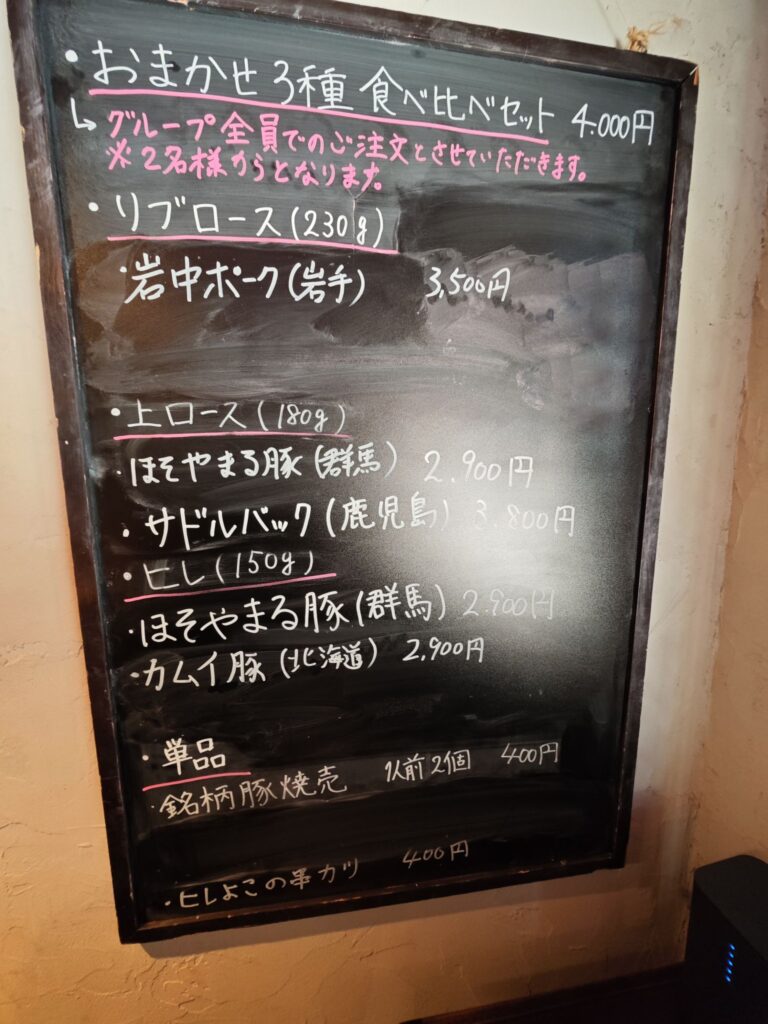 ・おまかせ3種 食べ比べセット 4.000円
↳グループ全員でのご注文とさせていただきます。
※2名様からとなります。
・リブロース(230g)
・岩中ポーク(岩手) 3,500円
・上ロース(180g)
・ほそやまる豚(群馬) 2.900円
・サドルバック(鹿児島) 3.800円
・ヒレ(150g)
・ほそやまる豚(群馬) 2.900円
・カムイ豚(北海道) 2,900円
・単品
・銘柄豚焼売 1人前2個 400円
・ヒレよこの串カツ 400円